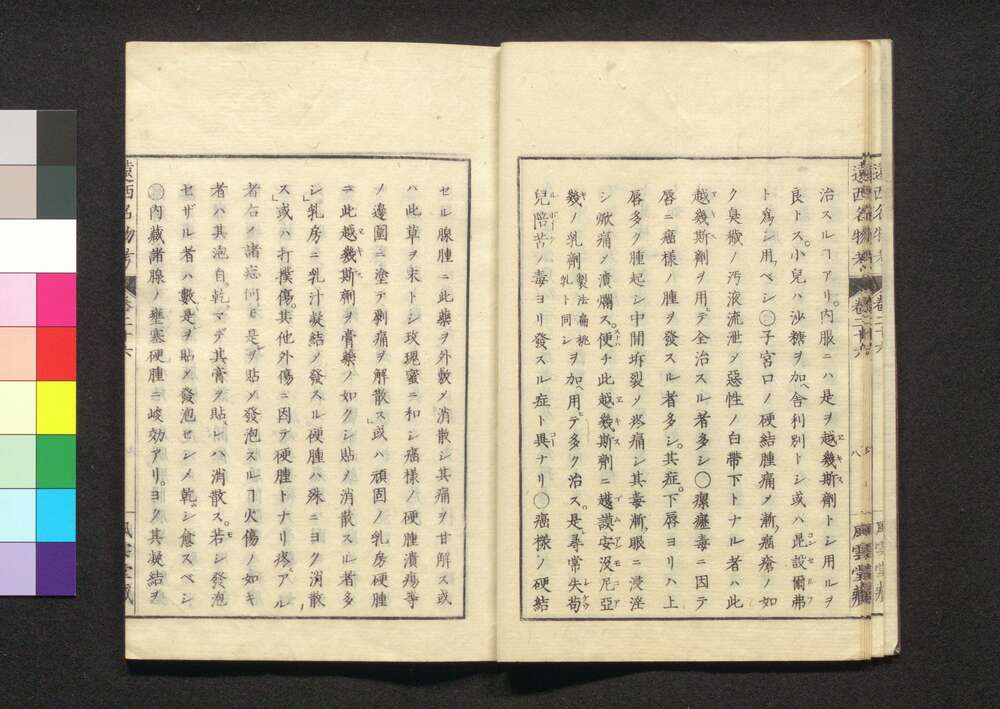 治スルヿアリ。内服ニハ是ヲ越幾斯劑トシ用ルヲ
良トス。小兒ハ沙糖ヲ加ヘ舎利別トシ或ハ昆設爾弗
ト爲シ用ベシ○子宮口ノ硬結腫痛メ漸ク癌瘡ノ如
ク臭穢ノ汚液流泄メ惡性ノ白帶下トナル者ハ此
越幾斯劑ヲ用テ全治スル者多シ○瘰癧毒ニ因テ
唇ニ癌樣ノ腫ヲ發スル者多シ。其症。下唇ヨリハ上
唇多ク腫起シ中間坼裂メ疼痛シ其毒漸ク眼ニ浸淫
シ焮痛メ潰爛ス。便チ此越幾斯劑ニ越謨安没尼亞
幾ノ乳劑製法扁桃乳ト同シヲ加ヘ用テ多ク治ス。是尋常失苟
兒陪苦ノ毒ヨリ發スル症ト異ナリ○癌樣ノ硬結
遠西名物考 卷二十六 風雲堂藏
セル腺腫ニ此藥ヲ外敷メ消散シ其痛ヲ甘解ス或
ハ此草ヲ末トシ玫瑰蜜ニ和シ癌樣ノ硬腫潰瘍等
ノ邊圍ニ塗テ剥痛ヲ解散ス」或ハ頑固ノ乳房硬腫
ニ此越幾斯劑ヲ膏藥ノ如クシ貼メ消散スル者多
シ」乳房ニ乳汁凝結メ發スル硬腫ハ殊ニヨク消散
ス」或ハ打撲傷。其他外傷ニ因テ硬腫トナリ疼アル
者右ノ諸症何モ是ヲ貼メ發泡スルヿ火傷ノ如キ
者ハ其泡自乾マデ其膏ヲ貼レハ消散ス。若シ發泡
セザル者ハ數是ヲ貼メ發泡セシメ乾シ食スベシ
○内藏諸腺ノ壅塞硬腫ニ峻効アリ。ヨク其凝結ヲ
遠西名物考 卷二十六 風雲堂藏